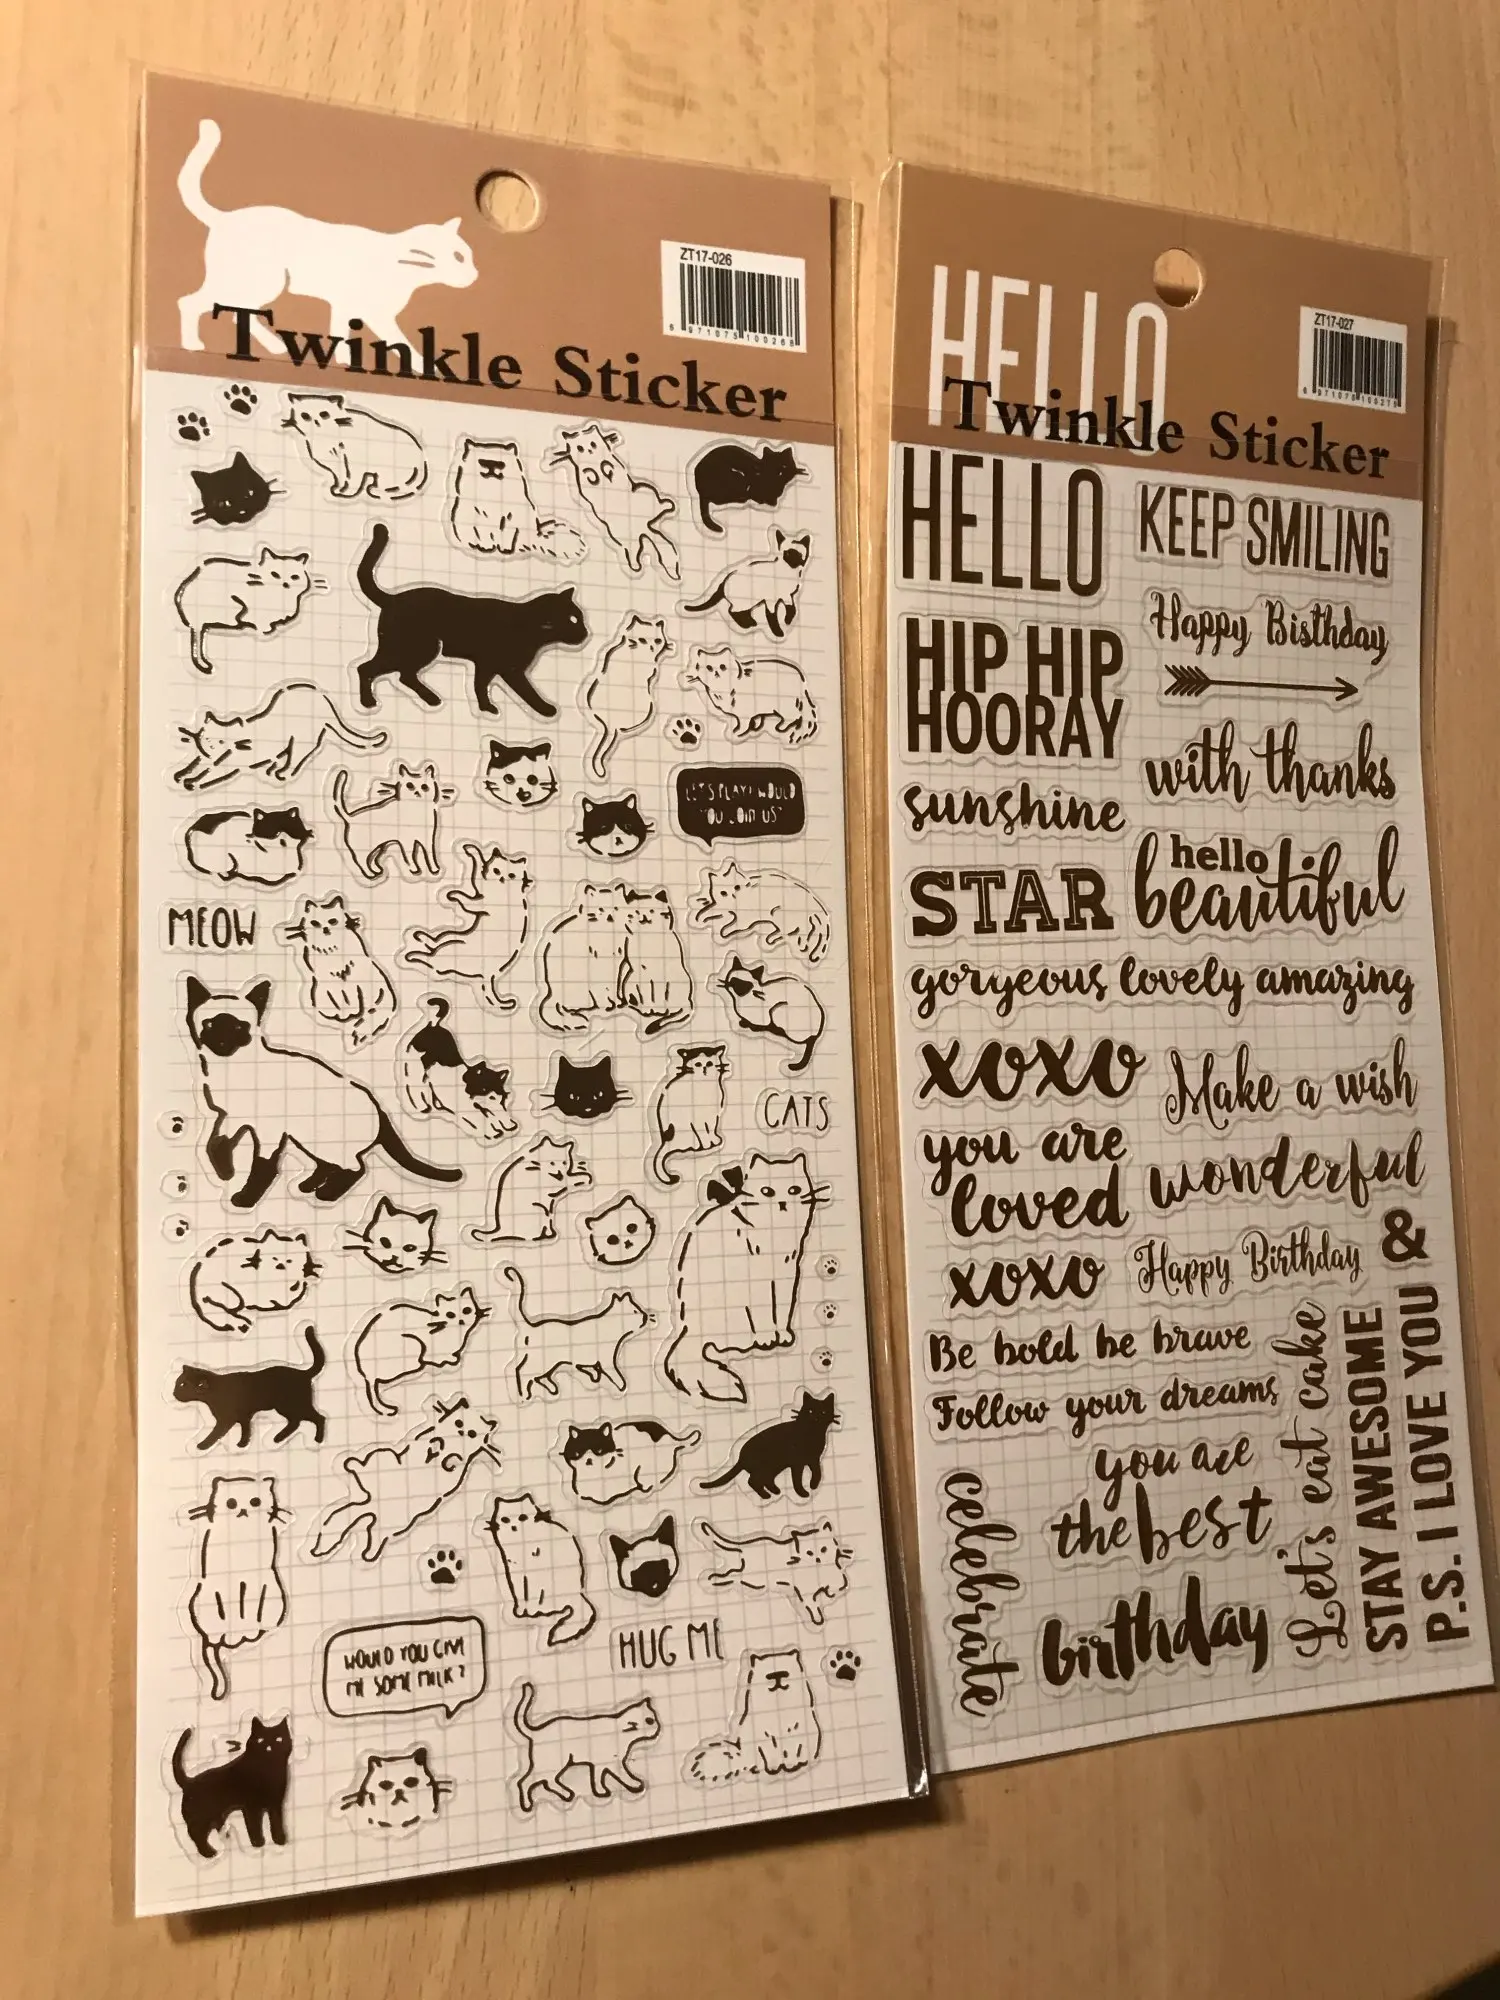 ZT17-026
6 971075 100268
Twinkle Sticker
LET'S PLAY! WOULD
YOU JOIN US?
MEOW
CATS
WOULD YOU GIVE
ME SOME MILK?
HUG ME
HELLO
ZT17-027
6 971075 100275
Twinkle Sticker
HELLO
KEEP SMILING
HIP HIP
HOORAY
Happy Birthday
with thanks
sunshine
STAR
hello
beautiful
gorgeous lovely amazing
xoxo
Make a wish
you are
loved
wonderful
xoxo
Happy Birthday
&
Be bold be brave
Follow your dreams
you are
the best
celebrate
birthday
Let's eat cake
STAY AWESOME
P.S. I LOVE YOU